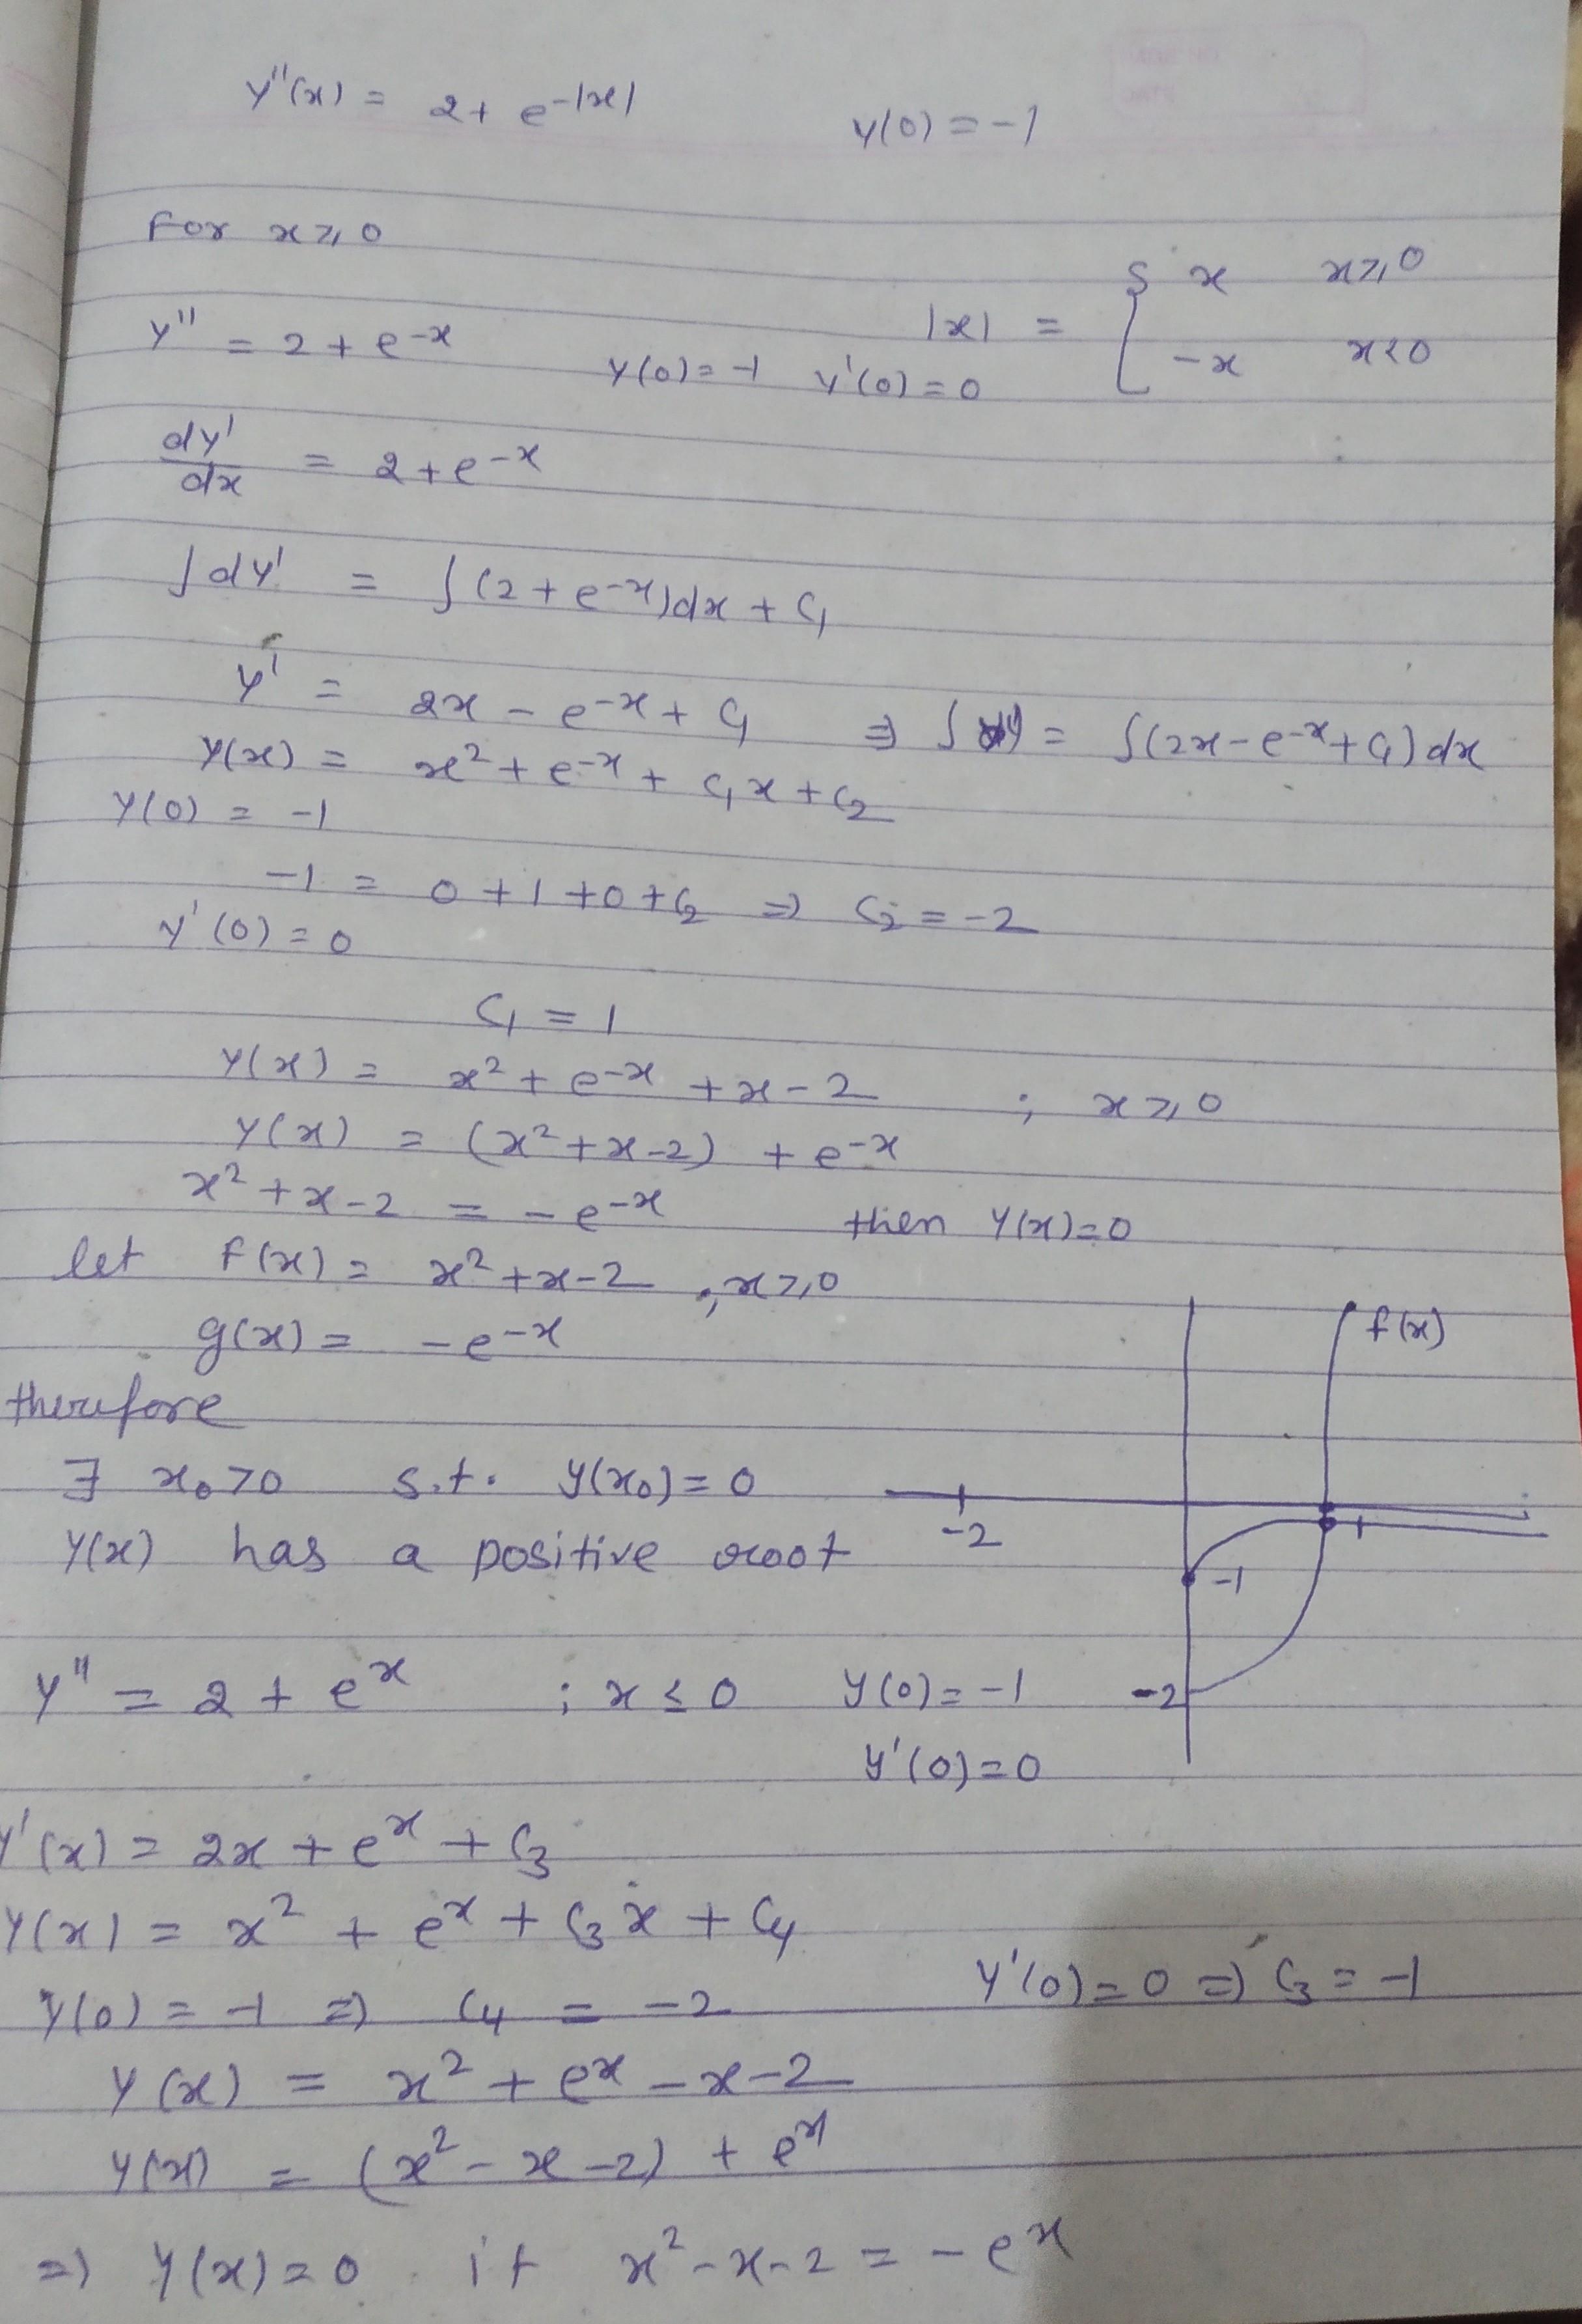 y''(x) = 2 + e^{-|x|} y(0) = -1
For x ≥ 0
|x| = { x x ≥ 0
-x x < 0
y'' = 2 + e^{-x} y(0) = -1 y'(0) = 0
dy'/dx = 2 + e^{-x}
∫dy' = ∫(2 + e^{-x})dx + C₁
y' = 2x - e^{-x} + C₁ ⇒ ∫ = ∫(2x - e^{-x} + C₁)dx
y(x) = x² + e^{-x} + C₁x + C₂
y(0) = -1
-1 = 0 + 1 + 0 + C₂ ⇒ C₂ = -2
y'(0) = 0
C₁ = 1
y(x) = x² + e^{-x} + x - 2 ; x ≥ 0
y(x) = (x² + x - 2) + e^{-x}
x² + x - 2 = -e^{-x} then y(x) = 0
let f(x) = x² + x - 2 , x ≥ 0
g(x) = -e^{-x}
f(x)
therefore
∃ x₀ > 0 s.t. y(x₀) = 0
-2 1
y(x) has a positive root
-1
-2
y'' = 2 + e^x ; x ≤ 0 y(0) = -1
y'(0) = 0
y'(x) = 2x + e^x + C₃
y(x) = x² + e^x + C₃x + C₄
y(0) = -1 ⇒ C₄ = -2 y'(0) = 0 ⇒ C₃ = -1
y(x) = x² + e^x - x - 2
y(x) = (x² - x - 2) + e^x
⇒ y(x) = 0 if x² - x - 2 = -e^x